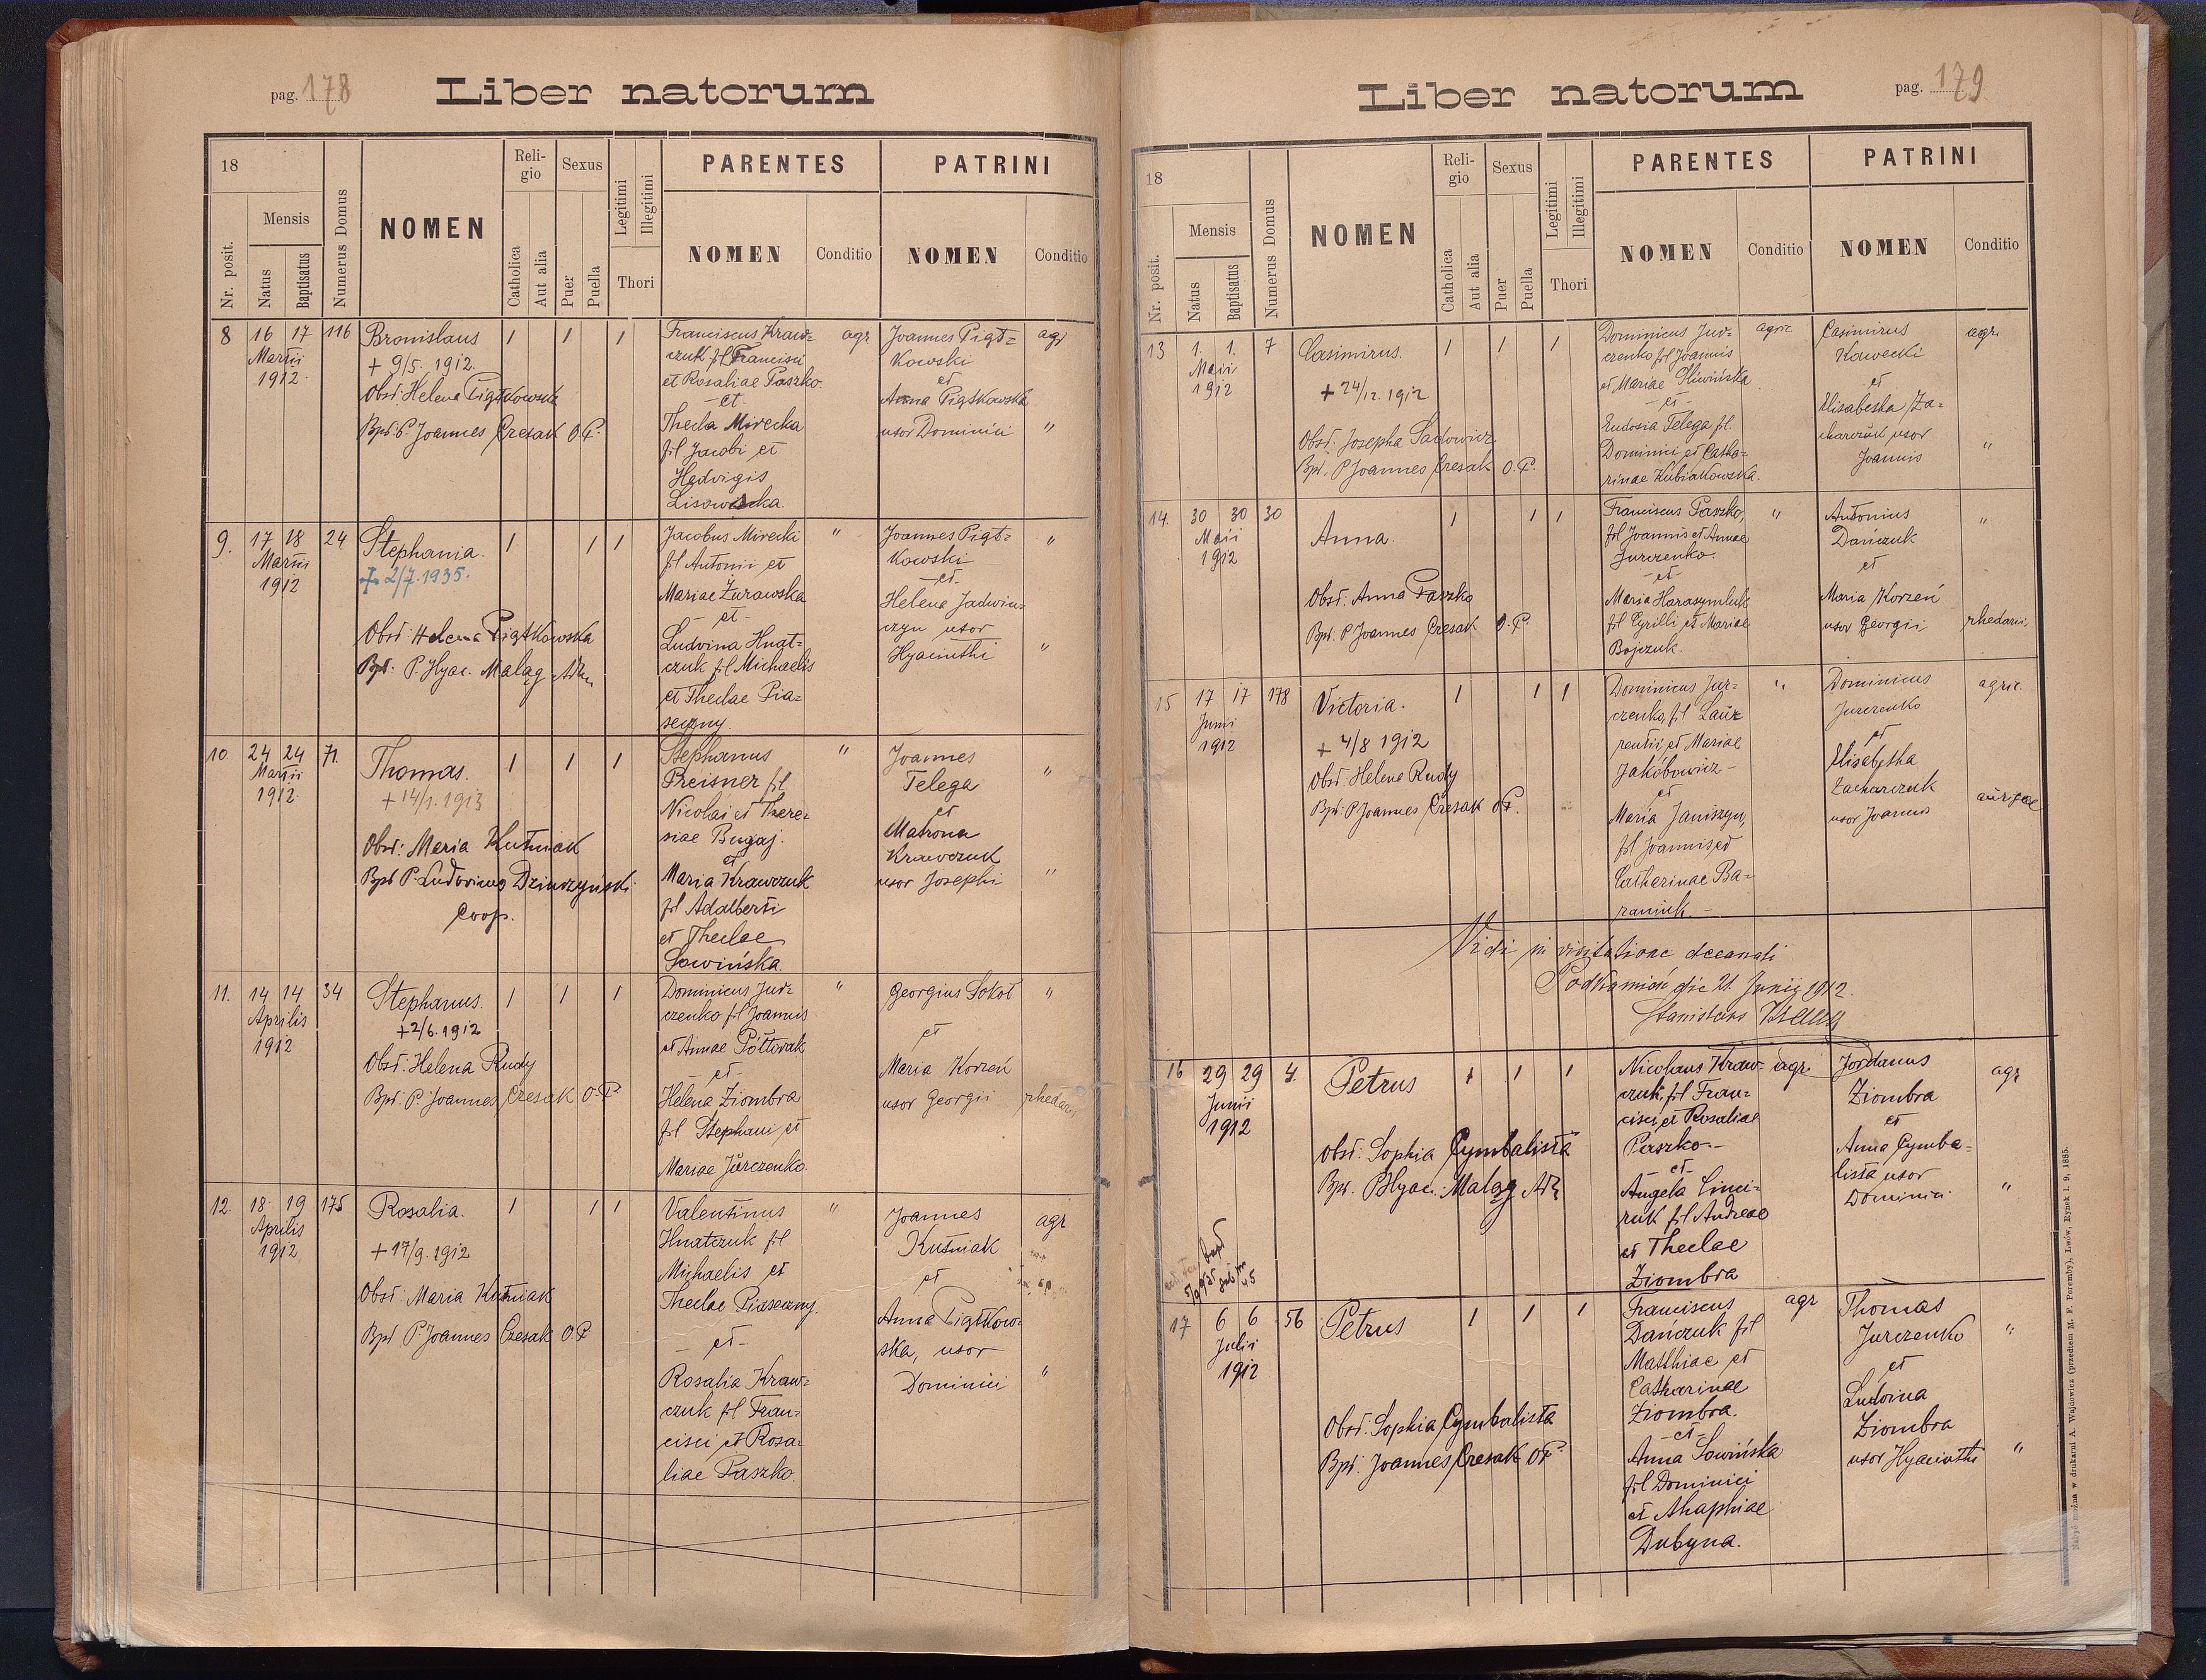 pag. 178
Liber natorum
18
Mensis
Nr. posit.
Natus
Baptisatus
Numerus Domus
NOMEN
Religio
Catholica
Aut alia
Sexus
Puer
Puella
Legitimi
Illegitimi
Thori
PARENTES
NOMEN
Conditio
PATRINI
NOMEN
Conditio
8 16 17 116
Martii
1912
Bronislaus
+ 9/5. 1912.
Obst: Helena Piątkowska
Bpt. P. Joannes Czesak O.P.
1 1 1
Franciscus Kraw=
czuk fil Francisci
et Rosaliae Paszko.
-et-
Thecla Mirecka
fil Jacobi et
Hedvigis
agr
Joannes Piąt=
kowski
et
Anna Piątkowska
uxor Dominici
agr
"
9. 17 18 24
Martii
1912
Stephania.
+ 2/7.1935.
Obst: Helena Piątkowska
Bpt. P. Hyac. Maląg Adm
1 1 1
Jacobus Mirecki
fil Antonii et
Mariae Żurawska
- et -
Ludvina Hnat=
czuk fil Michaelis
et Theclae Pia=
seczny.
"
Joannes Piąt=
kowski
-et-
Helena Jadwin=
czyn uxor
Hyacinthi
"
"
10. 24 24 71.
Martii
1912
Thomas.
+ 14/1. 1913
Obst: Maria Kutniak
Bpt P. Ludovicus
Coop.
1 1 1
Stephanus
Preisner fil
Nicolai et There=
siae Bugaj.
et
Maria Krawczuk
fil Adalberti
et Theclae
Sowińska.
"
Joannes
Telega
et
Matrona
Krawczuk
uxor Josephi
"
"
11. 14 14 34
Aprilis
1912
Stephanus.
+2/6.1912
Obst: Helena Rudy
Bpt. P. Joannes Czesak O.P.
1 1 1
Dominicus Jur=
czenko fil Joannis
et Annae Półtorak
-et-
Helena Ziombra
fil Stephani et
Mariae Jurczenko.
"
Georgius Sokoł
et
Maria Korzeń
uxor Georgii
"
rhedarii
12. 18 19 175
Aprilis
1912
Rosalia.
+ 17/9. 1912
Obst: Maria Kutniak
Bpt P. Joannes Czesak O.P.
1 1 1
Valentinus
Hnatczuk fil
Michaelis et
Theclae Piaseczny.
- et -
Rosalia Kraw=
czuk fil Fran=
cisci et Rosa=
liae Paszko.
"
Joannes
Kutniak
et
Anna Piątkow=
ska, uxor
Dominici
agr
"
Liber natorum
pag. 179
18
Mensis
Nr. posit.
Natus
Baptisatus
Numerus Domus
NOMEN
Religio
Catholica
Aut alia
Sexus
Puer
Puella
Legitimi
Illegitimi
Thori
PARENTES
NOMEN
Conditio
PATRINI
NOMEN
Conditio
13 1. 1. 7
Maii
1912
Casimirus.
+ 24/12. 1912
Obst: Josepha Sadowicz
Bpt. P Joannes Czesak O.P.
1 1 1
Dominicus Jur=
czenko fil Joannis
et Mariae Sliwińska
-et-
Eudosia Telega fil.
Dominici et Catha=
rinae Kubiakowska.
agric
Casimirus
Kawecki
et
Elisabetha Za=
charczuk uxor
Joannis
agr.
"
14. 30 30 30
Maii
1912
Anna.
Obst: Anna Paszko
Bpt. P Joannes Czesak O.P.
1 1 1
Franciscus Paszko,
fil Joannis et Annae
Jurczenko.
-et-
Maria Harasymluk
fil Cyrilli et Mariae
Bojczuk.
"
Antonius
Dańczuk
et
Maria Korzeń
uxor Georgii
"
rhedarii
15 17 17 178
Junii
1912
Victoria.
+ 4/8 1912
Obst. Helena Rudy
Bpt. P Joannes Czesak O.P.
1 1 1
Dominicus Jur=
czenko, fil Laur
rentii, et Mariae
Jakóbowicz -
et
Maria Janiszyn,
fil Joannis, et
Catharinae Ba=
raniuk. -
"
Dominicus
Jurczenko
et
Elisabetha
Zacharczuk
uxor Joannis
agric.
aurigae
Vidi in visitatione decanali
Podkamień die 21. Junii 1912.
Stanislaus
16 29 29 4.
Junii
1912
Petrus
Obst: Sophia Cymbalista
Bpt. P Hyac. Maląg Ad
1 1 1
Nicolaus Kraw=
czuk, fil Fran=
cisci, et Rosaliae
Paszko.-
-et-
Angela
fil Andreae
et Theclae
Ziombra
agr.
Jordanus
Ziombra
et
Anna Cymba=
lista uxor
Dominici
agr
"
17 6 6 56
Julii
1912
Petrus
Obst: Sophia Cymbalista
Bpt. Joannes Czesak O.P.
1 1 1
Franciscus
Dańczuk fil
Matthiae et
Catharinae
Ziombra.
-et-
Anna Sowińska
fil Dominici
et Ahaphiae
Dubyna.
agr
Thomas
Jurczenko
et
Ludvina
Ziombra
uxor Hyacinthi
"
"
Nabyć można w drukarni A. Wajdowicz (przedtem M. F. Poremby), Lwów, Rynek l. 9, 1885.